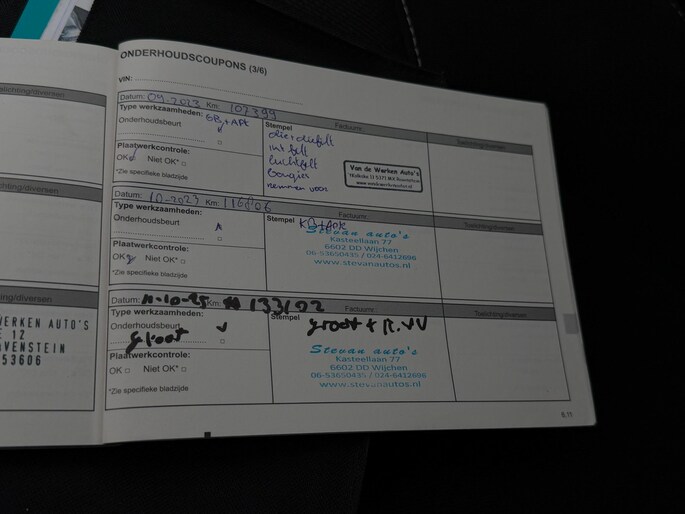 ONDERHOUDSCOUPONS (3/6)
VIN:
Datum: 09-2023 Km: 107399
Type werkzaamheden: GB + APK
Onderhoudsbeurt
Stempel Factuurnr.
Toelichting/diversen
olie + oliefilt
int filt
luchtfilt
bougies
remmen voor
Van de Werken Auto's
Plaatwerkcontrole:
OK Niet OK*
*Zie specifieke bladzijde
Datum: 10-2023 Km:
Type werkzaamheden:
Onderhoudsbeurt
Stempel Factuurnr.
Toelichting/diversen
Stevan auto's
Kasteellaan 77
6602 DD Wijchen
06-53650435 / 024-6412696
www.stevanautos.nl
Plaatwerkcontrole:
OK Niet OK*
*Zie specifieke bladzijde
Datum: Km: 133102
Type werkzaamheden:
Onderhoudsbeurt
groot
Stempel Factuurnr.
Toelichting/diversen
groot +
Stevan auto's
Kasteellaan 77
6602 DD Wijchen
06-53650435 / 024-6412696
www.stevanautos.nl
Plaatwerkcontrole:
OK Niet OK*
*Zie specifieke bladzijde
5.11
WERKEN AUTO'S
E 12
AVENSTEIN
53606